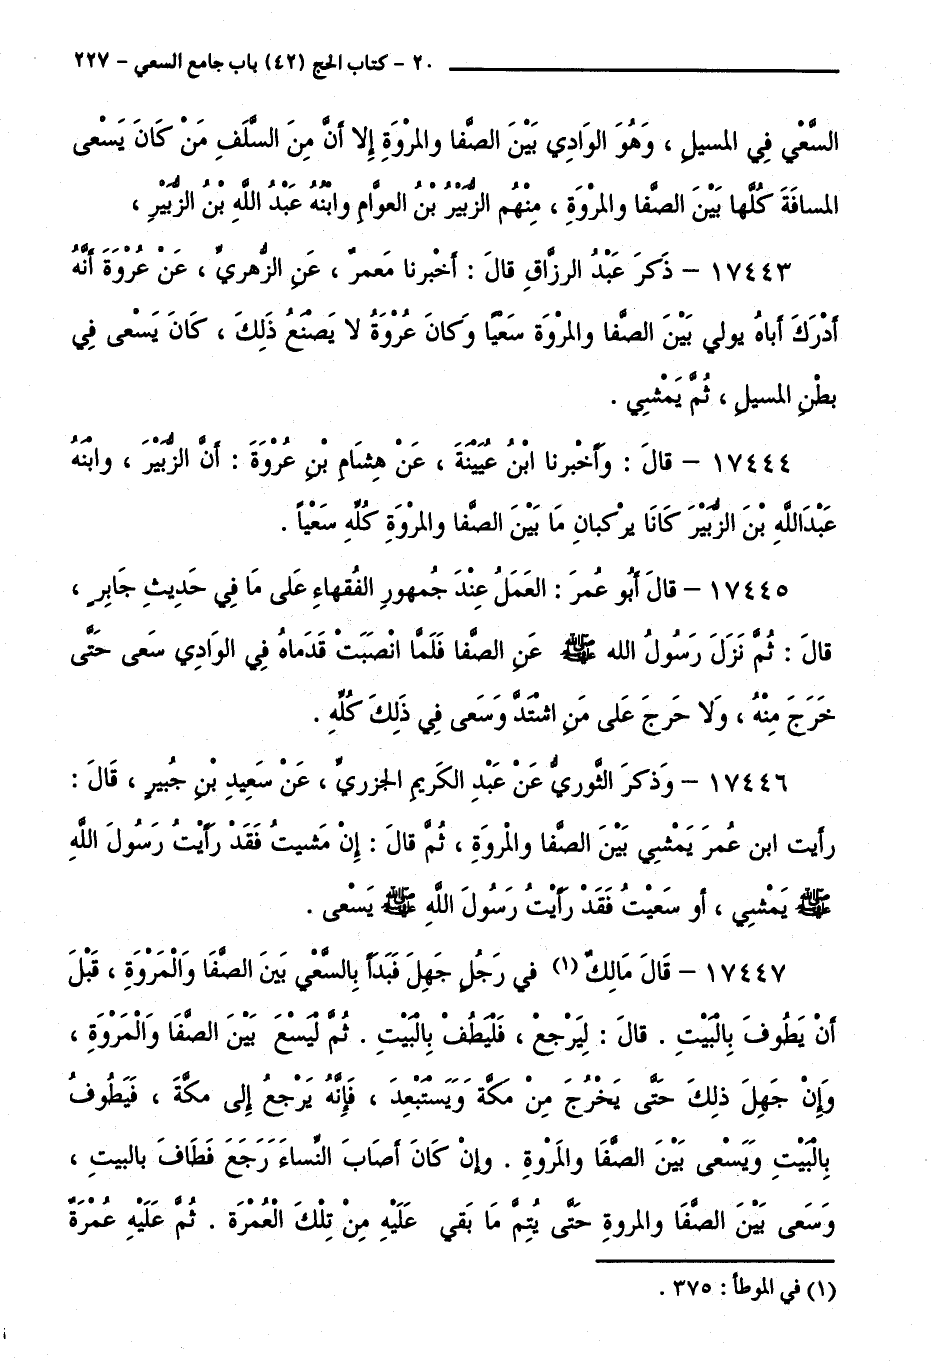 ٢٠ - كتاب الحج (٤٢) باب جامع السعي - ٢٢٧
السَّعْي فِي المسيلِ ، وَهُوَ الوَادِي بَيْنَ الصفَّا والمرْوَةِ إِلا أَنَّ مِنَ السَّلَفِ مَنْ كَانَ يَسْعى
المسافَةَ كُلَّها بَيْنَ الصفَّا والمرْوَةِ ، مِنْهُم الزُّبَيْرُ بْنُ العوَّامِ وابْنُهُ عَبْدُ اللَّهِ بْنُ الزُّبَيْرِ ،
١٧٤٤٣ - ذَكرَ عَبْدُ الرزَّاقِ قالَ : أَخْبرنا مَعمرٌ ، عَنِ الزُّهريِّ ، عَنْ عُرْوَةَ أنَّهُ
أَدْرَكَ أَباهُ يولي بَيْنَ الصفَّا والمرْوَة سَعيًا وَكانَ عُرْوَةُ لا يَصْنَعُ ذَلِكَ ، كَانَ يَسْعى فِي
بطْنِ المسيلِ ، ثُمَّ يَمْشيِ .
١٧٤٤٤ - قالَ : وأَخْبرنا ابْنُ عُيَيْنَةَ ، عَنْ هِشامِ بْنِ عُرْوَةَ : أَنَّ الزُّبَيْرَ ، وابنَهُ
عَبْدَاللَّهِ بْنَ الزُّبَيْرَ كَانَا يرْكبانِ مَا بَيْنَ الصفَّا والمرْوَةِ كُلِّهِ سَعْياً .
١٧٤٤٥ - قالَ أَبُو عُمرَ : العَمَلُ عِنْدَ جُمهورِ الفُقهاءِ عَلى مَا فِي حَديِثِ جَابرٍ ،
قالَ : ثُمَّ نَزَلَ رَسُولُ الله ﷺ عَنِ الصفَّا فَلَمَّا انْصَبَتْ قَدَماهُ فِي الوَادِي سَعى حَتَّى
خَرَجَ مِنْهُ ، وَلَا حَرجَ عَلى مَنِ اشْتَدَّ وَسَعى فِي ذَلِكَ كُلِّهِ .
١٧٤٤٦ - وَذكرَ الثَّوريُّ عَنْ عَبْدِ الكَريمِ الجزريِّ ، عَنْ سَعيدِ بْنِ جُبيرٍ ، قَالَ :
رأَيت ابن عُمرَ يَمْشيِ بَيْنَ الصفَّا والْمروَةِ ، ثُمَّ قالَ : إِنْ مَشيتُ فَقَدْ رَأَيْتُ رَسُولَ اللَّهِ
ﷺ يَمْشيِ ، أو سَعيْتُ فَقَدْ رَأَيْتُ رَسُولَ اللَّهِ ﷺ يَسْعَى .
١٧٤٤٧ - قَالَ مَالِكٌ (١) في رَجُلٍ جَهِلَ فَبَدَأَ بِالسَّعْيِ بَيْنَ الصَّفَا وَالْمَرْوَةِ ، قَبْلَ
أَنْ يَطُوفَ بِالْبَيْتِ . قالَ : لِيَرْجِعْ ، فَلْيَطُفْ بِالْبَيْتِ . ثُمَّ لْيَسْعَ بَيْنَ الصَّفَا وَالْمَرْوَةِ ،
وَإِنْ جَهِلَ ذلِكَ حَتَّى يَخْرُجَ مِنْ مَكَّةَ وَيَسْتَبْعِدَ ، فَإِنَّهُ يَرْجِعُ إِلى مكَّةَ ، فَيَطُوفُ
بِالْبَيْتِ وَيَسْعى بَيْنَ الصفَّا والمَرْوةِ . وإِنْ كَانَ أصَابَ النِّساءَ رَجَعَ فَطَافَ بالبيتِ ،
وَسَعى بَيْنَ الصفَّا والمروةِ حَتَّى يُتِمَّ مَا بَقي عَلَيْهِ مِنْ تِلْكَ الْعُمْرَةِ . ثُمَّ عَلَيْهِ عُمْرَةٌ
(١) في الموطأ : ٣٧٥ .